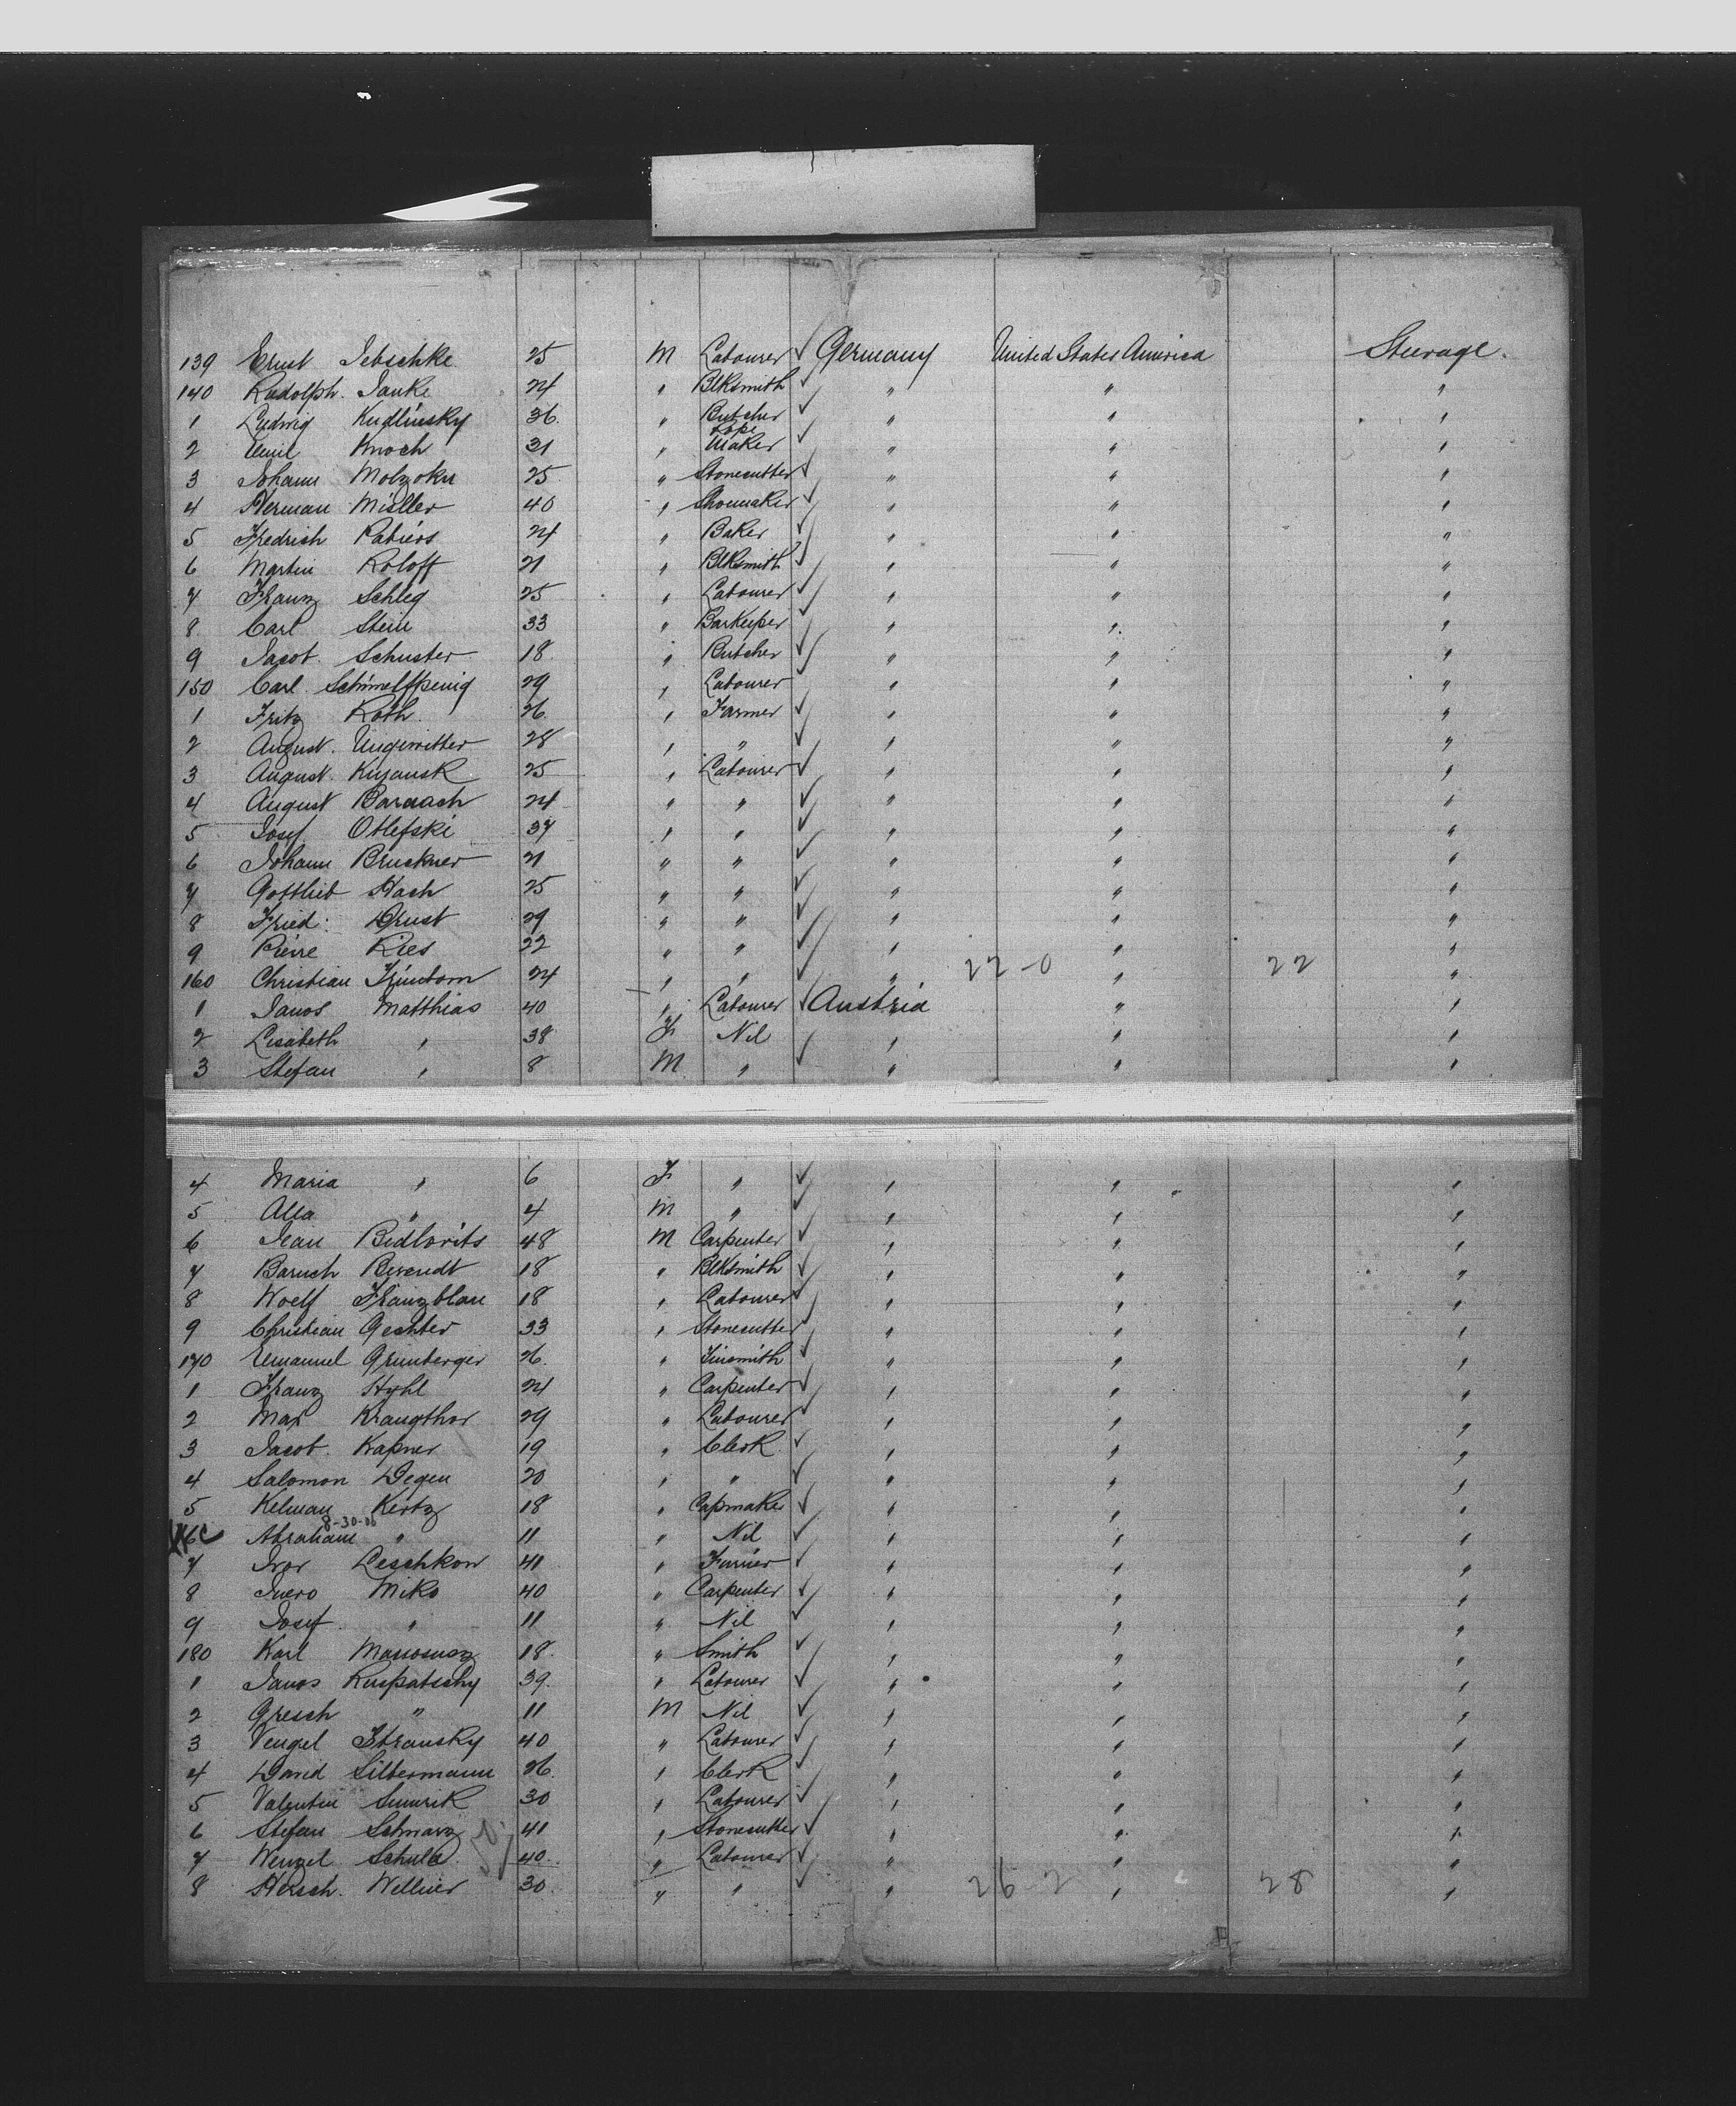 139 Ernst Jebschke 25 M Labourer ✓ Germany United States America Steerage.
140 Rudolph. Janke 24 " Blksmith ✓ " " "
1 Ludwig Kudlinsky 36. " Butcher ✓ " " "
2 Emil Knoch 31 " Rope Maker ✓ " " "
3 Johann Molzokn 25 " Stonecutter ✓ " " "
4 Herman Müller 40 " Shoemaker ✓ " " "
5 Fredrich Rabiers 24 " Baker ✓ " " "
6 Martin Roloff 21 " Blksmith ✓ " " "
7 Franz Schleg 25 " Labourer ✓ " " "
8. Carl Stein 33 " Barkeeper ✓ " " "
9 Jacob. Schuster 18. " Butcher ✓ " " "
150 Carl. Schimelfpenig 29 " Labourer " " "
1 Fritz Roth. 26. " Farmer ✓ " " "
2 August. Ungewitter 28 " " ✓ " " "
3 August. Kuyansk 25 " Labourer ✓ " " "
4 August Baraach 24 " " ✓ " " "
5 Josef Otlefski 37 " " ✓ " " "
6 Johann Bruckner 21 " " ✓ " " "
7 Gottlieb Hach 25 " " ✓ " " "
8 Fried: Ernst 29 " " ✓ " " "
9 Pierre Kies 22 " " ✓ " " "
160 Christian 24 " " ✓ " 22-0 " 22 "
1 Janos Matthias 40 " Labourer ✓ Austria " "
2 Lisabeth " 38 F Nil " " "
3 Stefan " 8 M " ✓ " " "
4 Maria " 6 F " ✓ " " "
5 Alla " 4 M " ✓ " " "
6 Jean Bidlovits 48 M Carpenter ✓ " " "
7 Baruch Berendt 18 " Blksmith ✓ " " "
8 Woelf Franzblau 18 " Labourer ✓ " " "
9 Christian Gechter 33 " Stonecutter ✓ " " "
170 Emanuel Grunberger 26. " Tinsmith ✓ " " "
1 Franz Hyhl 24 " Carpenter ✓ " " "
2 Max Krangthor 29 " Labourer ✓ " " "
3 Jacob. Kapner 19 " Clerk ✓ " " "
4 Salomon Degen 20 " " ✓ " " "
5 Kelman Kertz 18 " Capmaker ✓ " " "
8-30-06
6C Abraham " 11 " Nil ✓ " " "
7 Ivor Leschkow 41 " Furrier ✓ " " "
8 Juero Miko 40 " Carpenter ✓ " " "
9 Josef " 11 " Nil ✓ " " "
180 Karl 18. " Smith ✓ " " "
1 Janos Ruspatschy 39. " Labourer ✓ " " "
2 Gresch " 11 M Nil ✓ " " "
3 Vengel Stransky 40 " Labourer ✓ " " "
4 David Silbermann 26. " Clerk ✓ " " "
5 Valentin Smurik 30 " Labourer ✓ " " "
6 Stefan Schwarz 41 " Stonecutter ✓ " " "
7 Wenzel Schula 40. " Labourer ✓ " " "
8 Hersch. Wellner 30. " " ✓ " 26-2 " 28 "